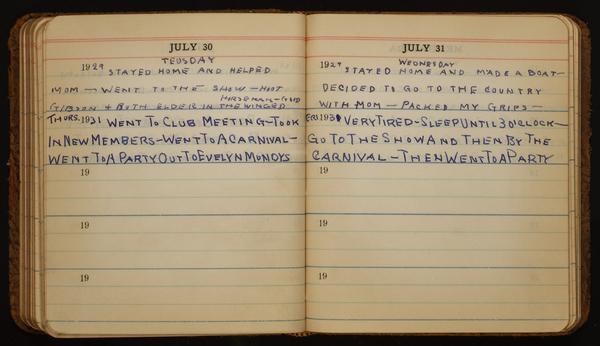 JULY 30
TEUSDAY
1929 STAYED HOME AND HELPED
MOM — WENT TO THE SHOW — HOOT
GIBSON & BOTH ELDER IN THE WINGED
HORSEMAN — GOOD
THURS. 1931 WENT TO CLUB MEETING - TOOK
IN NEW MEMBERS - WENT TO A CARNIVAL -
WENT TO A PARTY OUT TO EVELYN MONDYS
19
19
19
JULY 31
WEDNESDAY
1929 STAYED HOME AND MADE A BOAT -
DECIDED TO GO TO THE COUNTRY
WITH MOM — PACKED MY GRIPS —
FRI 1931 VERY TIRED - SLEEP UNTIL 3 O'CLOCK —
GO TO THE SHOW AND THEN BY THE
CARNIVAL - THEN WENT TO A PARTY
19
19
19